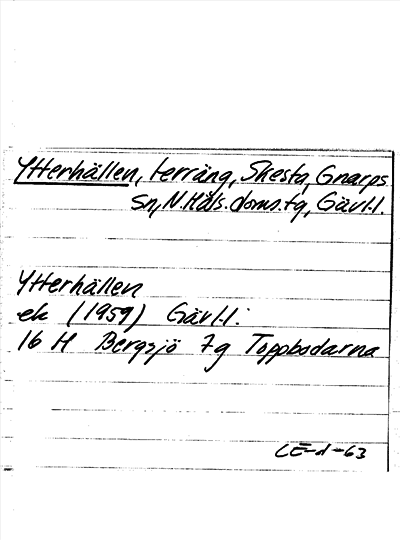 Ytterhällen, terräng, Skesta, Gnarps
Sn, N. Häls. doms. tg, Gävl.l.
Ytterhällen
ek (1959) Gävl.l.
16 H Bergsjö 7g Toppbodarna
CE-d-63